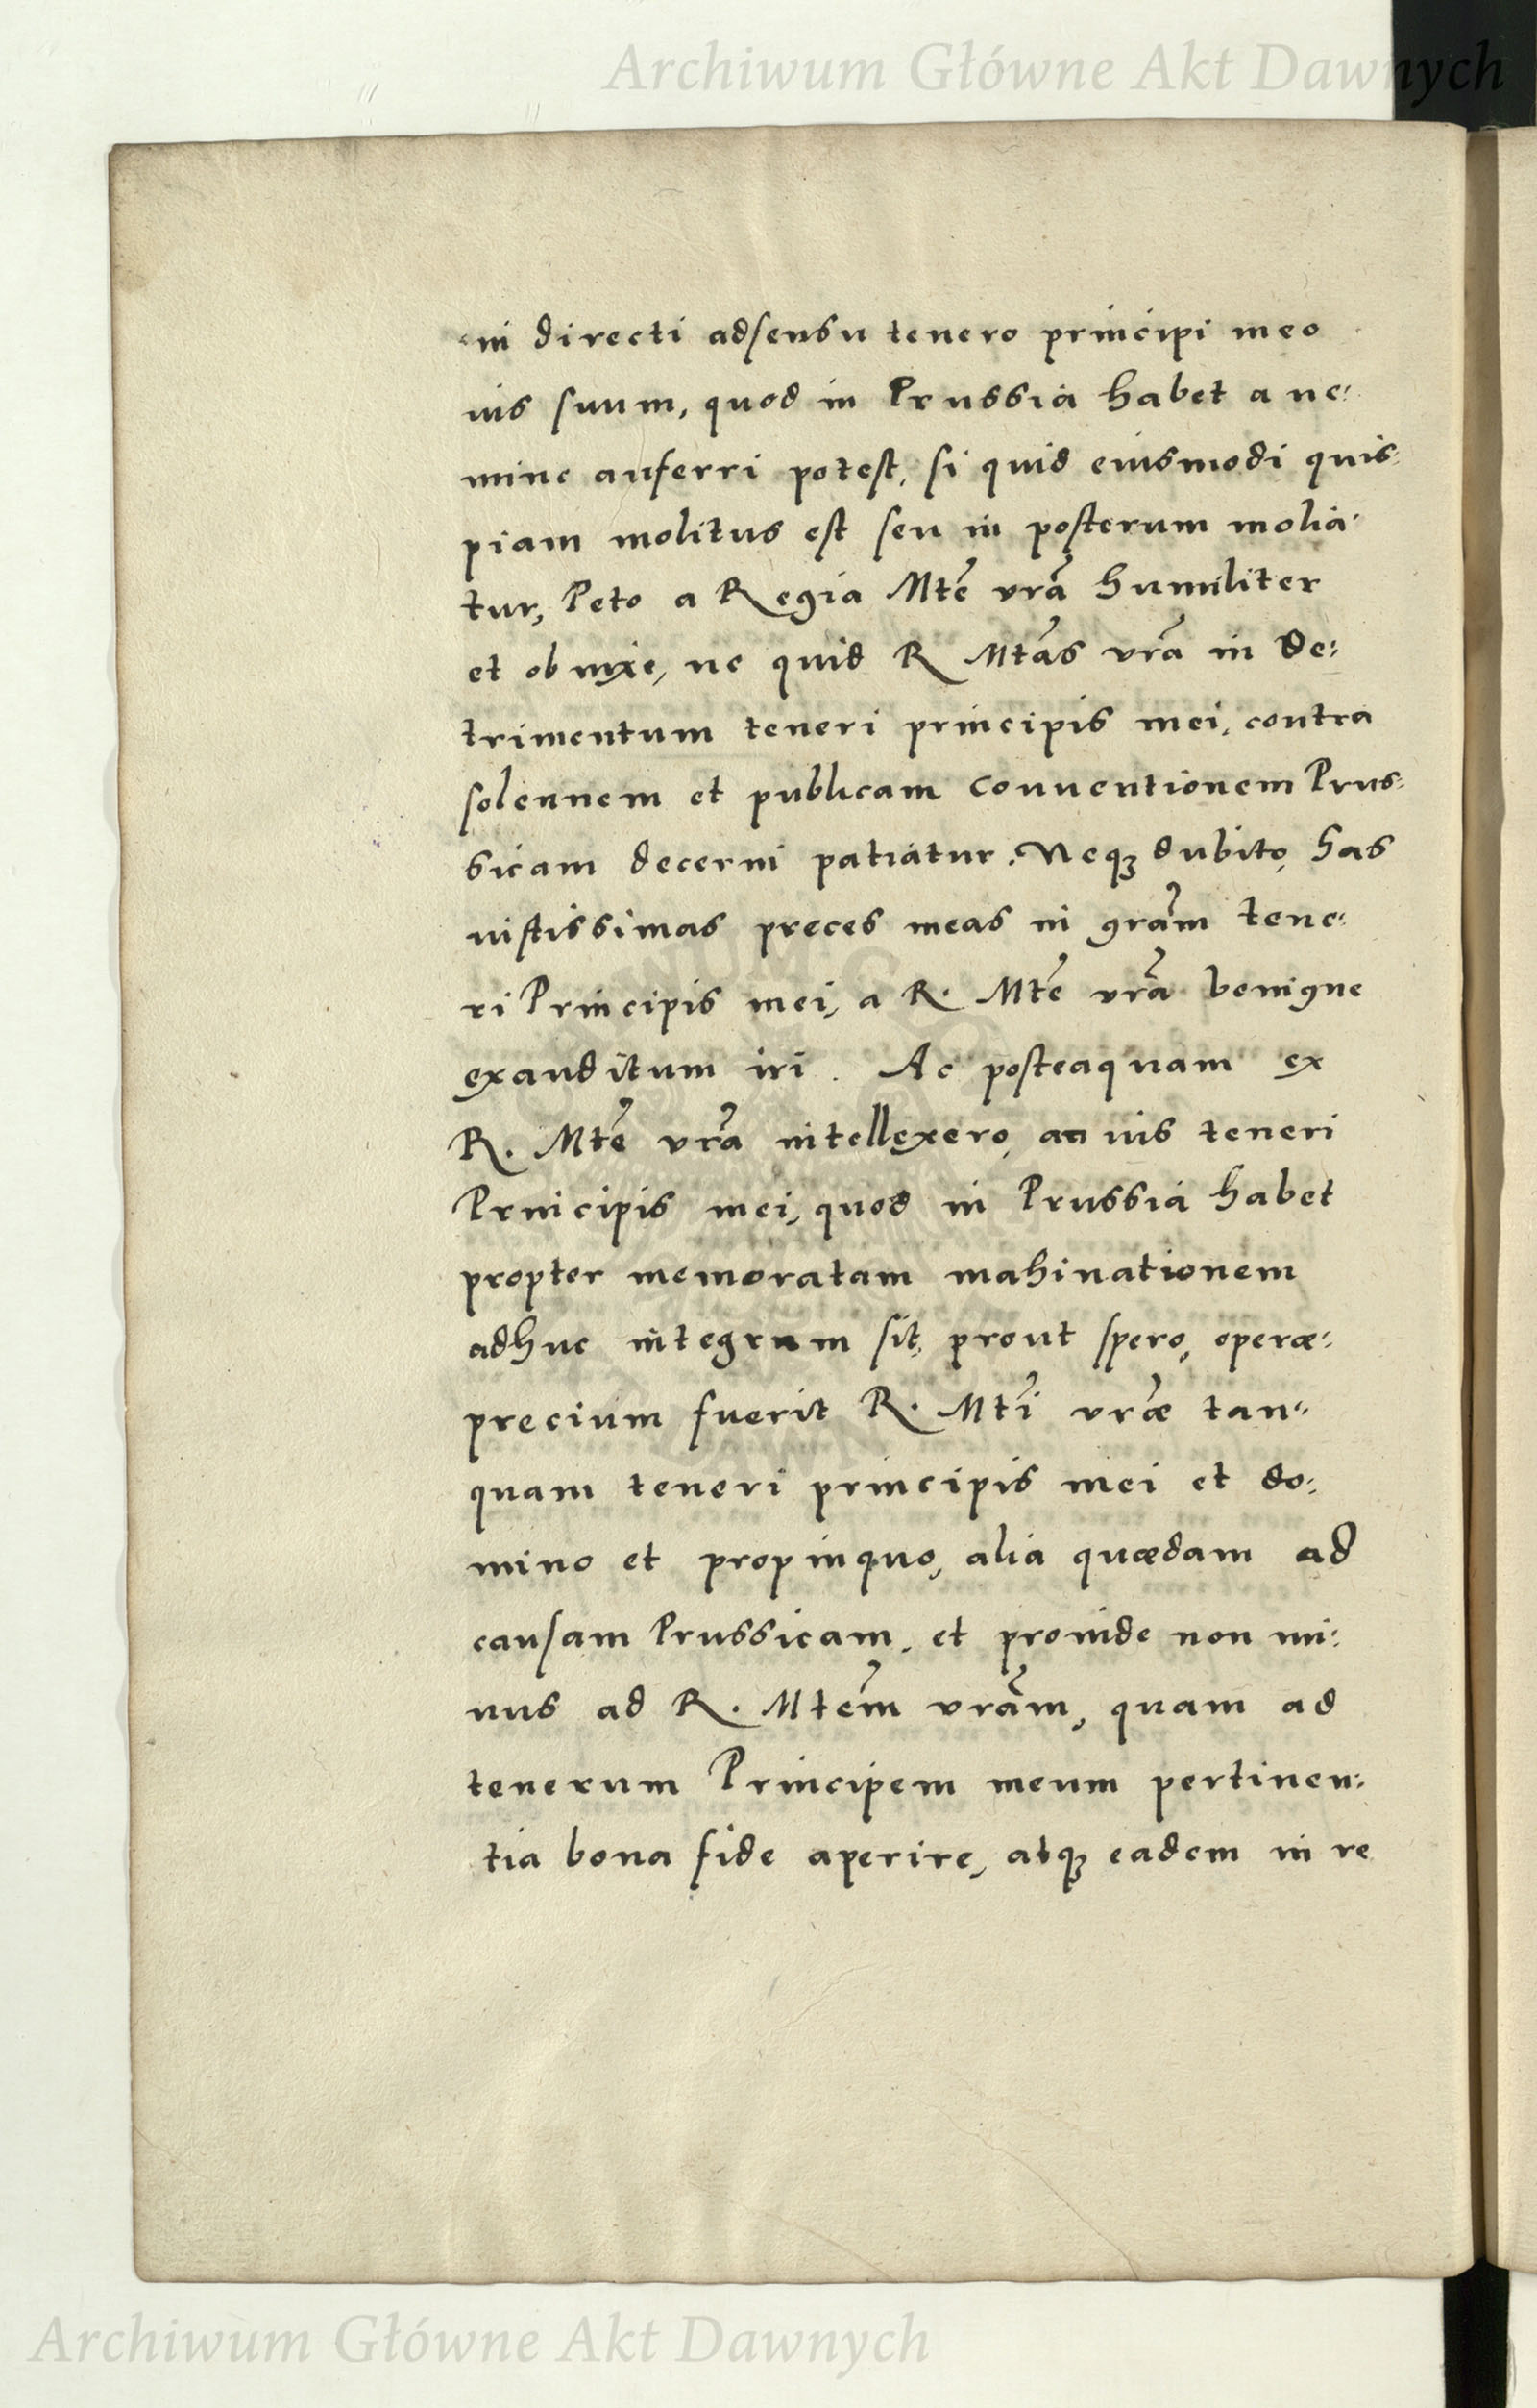 Archiwum Główne Akt Dawnych
ni directi adsensu tenero principi meo
ius suum, quod in Prussia habet a ne:
mine auferri potest, si quid eiusmodi quis:
piam molitus est seu in posterum molia:
tur, Peto a Regia Mtẽ vrã humiliter
et obnixe, ne quid R Mtãs vrã in de:
trimentum teneri principis mei, contra
solennem et publicam conuentionem Prus:
sicam decerni patiatur. Neqꝫ dubito, has
iustissimas preces meas in grãm tene:
ri Principis mei, a R. Mtẽ vrã benigne
exauditum iri. Ac posteaquam ex
R. Mtẽ vrã intellexero, an ius teneri
Principis mei, quod in Prussia habet
propter memoratam mahinationem
adhuc integrum sit, prout spero, operæ:
precium fuerit R. Mtĩ vræ̃ tan:
quam teneri principis mei et do:
mino et propinquo, alia quædam ad
causam Prussicam, et proinde non mi:
nus ad R. Mtem̃ vrãm, quam ad
tenerum Principem meum pertinen:
tia bona fide aperire, atqꝫ eadem in re
Archiwum Główne Akt Dawnych